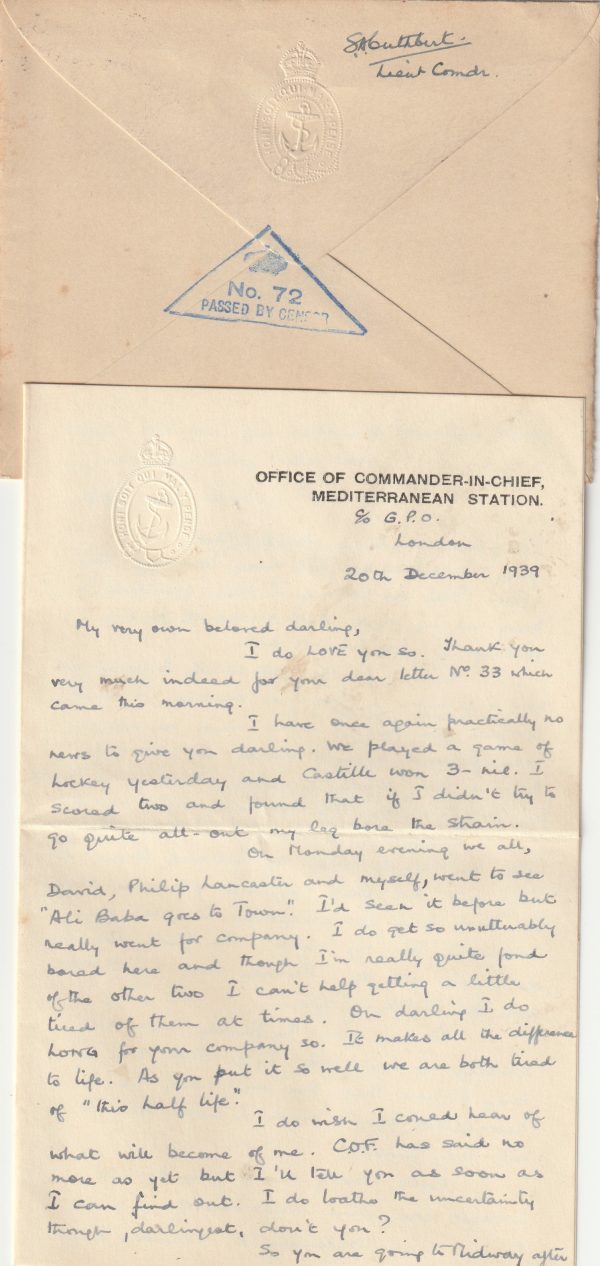 SACuthbert.
Lieut Comdr.
HONI SOIT QUI MAL Y PENSE
No. 72
PASSED BY CENSOR
HONI SOIT QUI MAL Y PENSE
OFFICE OF COMMANDER-IN-CHIEF,
MEDITERRANEAN STATION.
c/o G.P.O.
London
20th December 1939
My very own beloved darling,
I do LOVE you so. Thank you
very much indeed for your dear letter No. 33 which
came this morning.
I have once again practically no
news to give you darling. We played a game of
hockey yesterday and Castille won 3-nil. I
scored two and found that if I didn't try to
go quite all-out my leg bore the strain.
On Monday evening we all,
David, Philip Lancaster and myself, went to see
"Ali Baba goes to Town". I'd seen it before but
really went for company. I do get so unutterably
bored here and though I'm really quite fond
of the other two I can't help getting a little
tired of them at times. Oh darling I do
LONG for your company so. It makes all the difference
to life. As you put it so well we are both tired
of "this half life".
I do wish I could hear of
what will become of me. C.O.F. has said no
more as yet but I'll tell you as soon as
I can find out. I do loathe the uncertainty
though, darlingest, don't you?
So you are going to Midway after